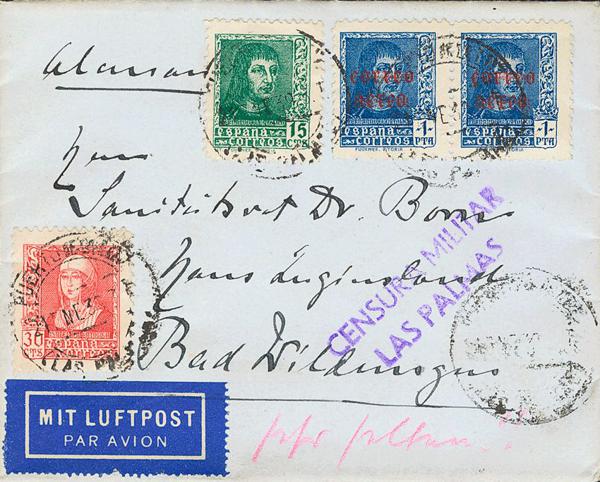 Alemania
15
ESPAÑA CTS
CORREOS
correo
aéreo
ESPAÑA -1-
CORREOS PTA
correo
aéreo
ESPAÑA -1-
CORREOS PTA
Herrn
Sanitätsrat Dr. Born
Haus Luginsland
Bad Wildungen
CENSURA MILITAR
LAS PALMAS
30
CTS
ESPAÑA
CORREOS
MIT LUFTPOST
PAR AVION